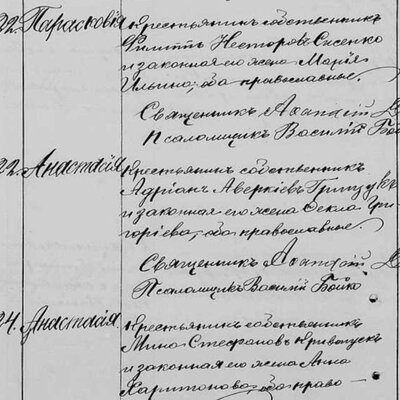 22. Парасковія Крестьянин собственник
Филипп Несторов Сисенко
и законная его жена Марія
Ильина, оба православные.
Священник Агафій
Псаломщик Василій Бойко
22. Анастасія Крестьянин собственник
Адріан Аверкіев Гринзук
и законная его жена Фекла Гри-
горіева, оба православные.
Священник Агафій
Псаломщик Василій Бойко
24. Анастасія Крестьянин собственник
Мина Стефанов Кривопуск
и законная его жена Анна
Харитонова, оба право-